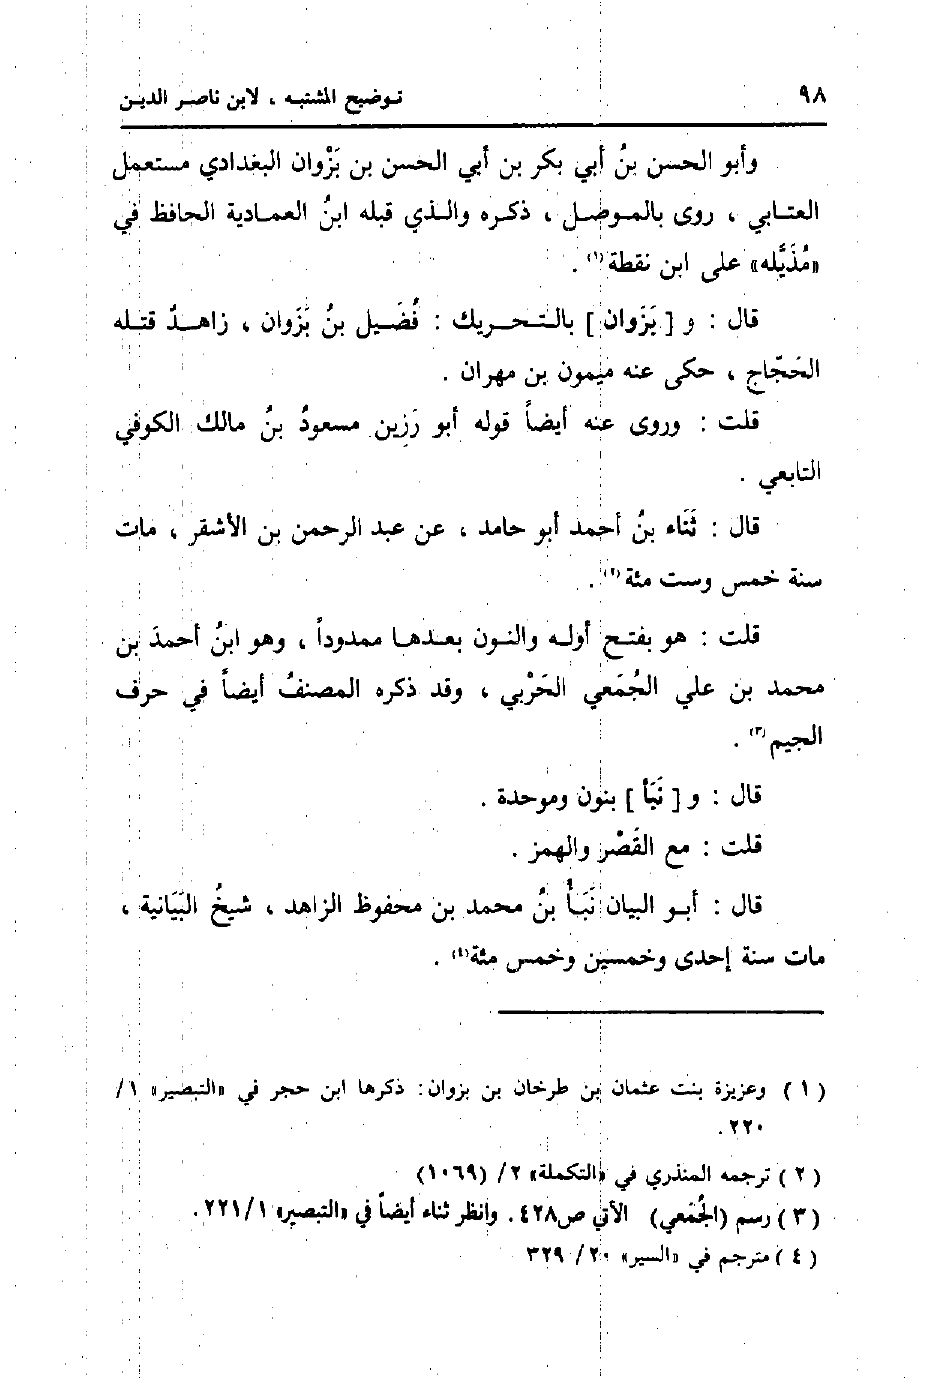 ٩٨
توضيح المشتبه ، لابن ناصر الدين
وأبو الحسن بنُ أبي بكر بن أبي الحسن بن بَزْوان البغدادي مستعمل
العتابي ، روى بالموصل ، ذكره والذي قبله ابنُ العمادية الحافظ في
«مُذَيَّله» على ابن نقطة(١) .
قال : و [ بَزَوان ] بالتحريك : فُضَيل بنُ بَزَوان ، زاهدٌ قتله
الحَجّاج ، حكى عنه ميمون بن مهران .
قلت : وروى عنه أيضاً قوله أبو رَزِين مسعودُ بنُ مالك الكوفي
التابعي .
قال : ثَنَاء بنُ أحمد أبو حامد ، عن عبد الرحمن بن الأشقر ، مات
سنة خمس وست مئة(٢) .
قلت : هو بفتح أوله والنون بعدها ممدوداً ، وهو ابنُ أحمدَ بن
محمد بن علي الجُمَعي الحَرْبي ، وقد ذكره المصنفُ أيضاً في حرف
الجيم(٣) .
قال : و [ نَبَأ ] بنون وموحدة .
قلت : مع القَصْر والهمز .
قال : أبو البيان نَبَأُ بنُ محمد بن محفوظ الزاهد ، شيخُ البَيَانية ،
مات سنة إحدى وخمسين وخمس مئة(٤) .
(١) وعزيزة بنت عثمان بن طرخان بن بزوان: ذكرها ابن حجر في «التبصير» ١/
٢٢٠.
(٢) ترجمه المنذري في «التكملة» ٢/ (١٠٦٩)
(٣) رسم (الجُمَعي) الآتي ص٤٢٨. وانظر ثناء أيضاً في «التبصير» ٢٢١/١.
(٤) مترجم في «السير» ٢٠/ ٣٢٩